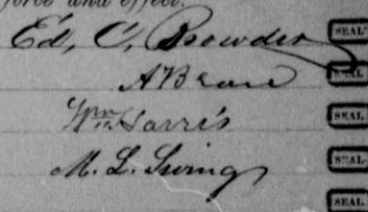 force and effect.
Ed, C, Browder SEAL
A B Lane SEAL
Wm Harris SEAL
M. L. Swing SEAL
SEAL